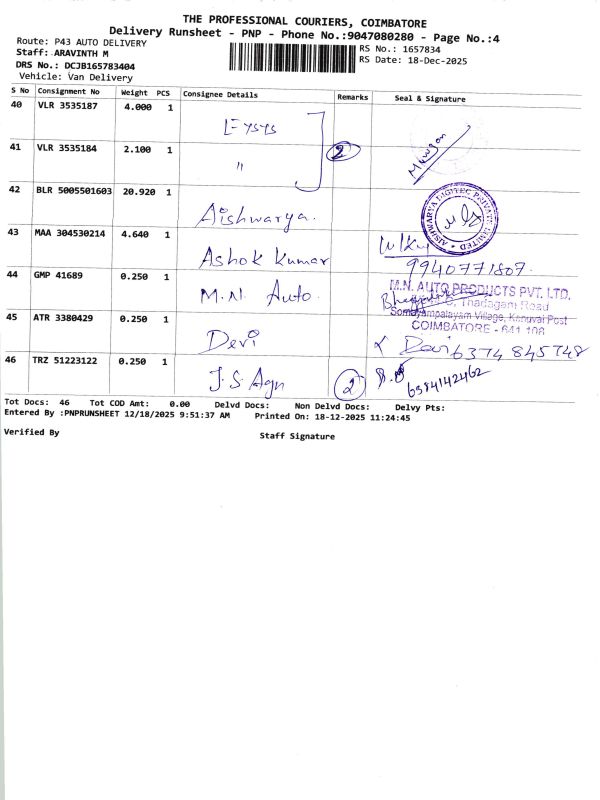 THE PROFESSIONAL COURIERS, COIMBATORE
Delivery Runsheet - PNP - Phone No.:9047080280 - Page No.:4
Route: P43 AUTO DELIVERY
Staff: ARAVINTH M
DRS No.: DCJB165783404
Vehicle: Van Delivery
RS No.: 1657834
RS Date: 18-Dec-2025
S No Consignment No Weight PCS Consignee Details Remarks Seal & Signature
40 VLR 3535187 4.000 1
41 VLR 3535184 2.100 1 " 2
42 BLR 5005501603 20.920 1 Aishwarya.
AISHWARYA DIGITEC PRIVATE LIMITED
43 MAA 304530214 4.640 1 Ashok Kumar 9940771807.
44 GMP 41689 0.250 1 M.N. Auto.
M.N. AUTO PRODUCTS PVT. LTD.
Thadagam Road
Somayampalayam Village, Kanuvai Post
COIMBATORE - 641 108
45 ATR 3380429 0.250 1 Devi Devi 6374845748
46 TRZ 51223122 0.250 1 J.S. Agn 2 6384142462
Tot Docs: 46 Tot COD Amt: 0.00 Delvd Docs: Non Delvd Docs: Delvy Pts:
Entered By :PNPRUNSHEET 12/18/2025 9:51:37 AM Printed On: 18-12-2025 11:24:45
Verified By Staff Signature